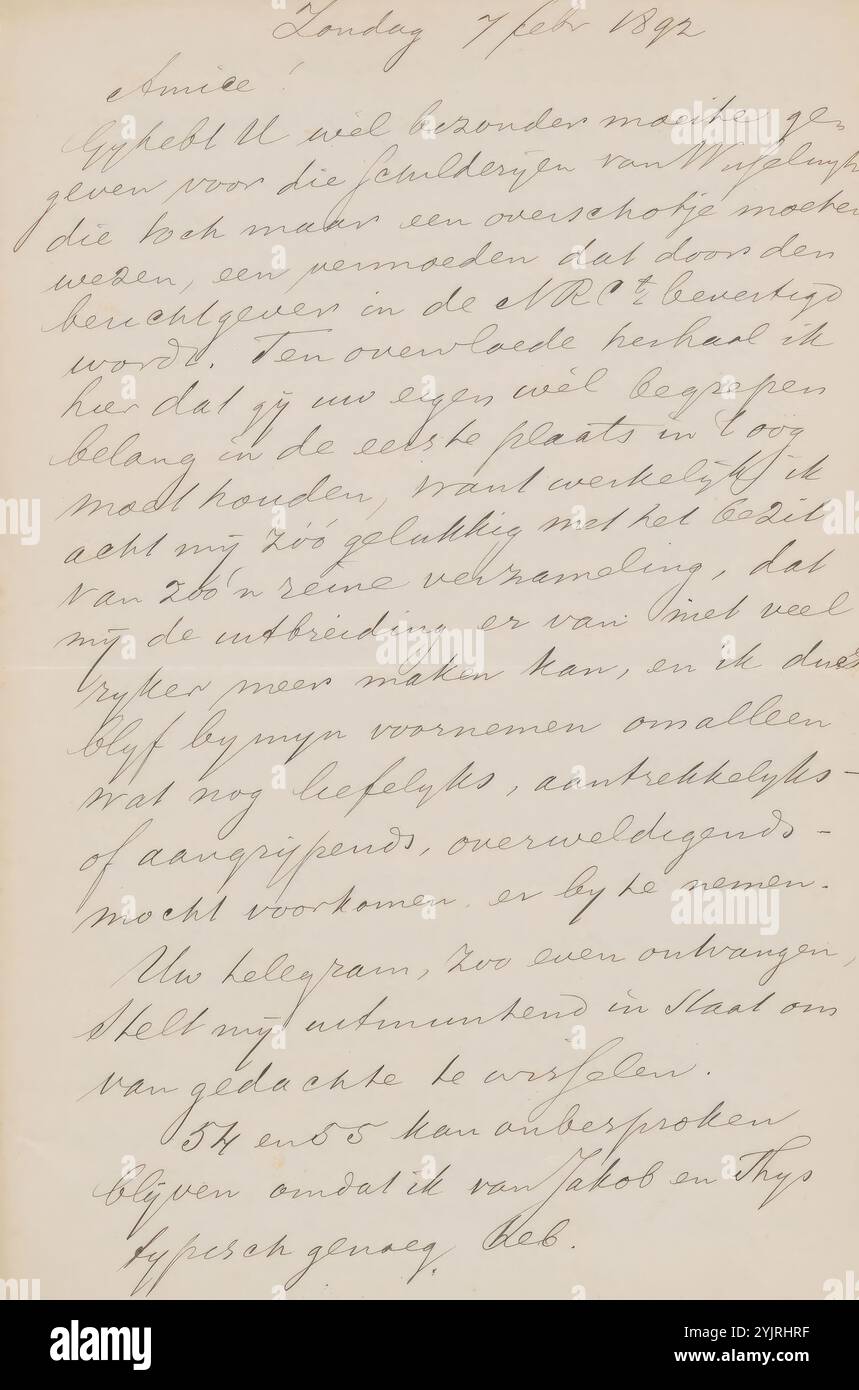 Zondag 7 febr 1892
Amice!
Gy hebt U wèl bezonder moeite ge=
geven voor die schilderyen van Wisselingh
die toch maar een overschotje moeten
wezen, een vermoeden dat door den
berichtgever in de NRCt bevestigd
wordt. Ten overvloede herhaal ik
hier dat gy uw eigen wèl begrepen
belang in de eerste plaats in 't oog
moet houden, want werkelyk ik
acht my zóó gelukkig met het bezit
van zóó'n reine verzameling, dat
my de uitbreiding er van niet veel
ryker meer maken kan, en ik dus
blyf by myn voornemen om alleen
wat nog liefelyks, aantrekkelyks -
of aangrypends, overweldigends -
mocht voorkomen er by te nemen.
Uw telegram, zoo even ontvangen,
stelt my uitmuntend in staat om
van gedachte te wisselen.
54 en 55 kan onbesproken
blyven omdat ik van Jakob en Thys
typisch genoeg heb.
alamy
Image ID: 2YJRHRF
www.alamy.com